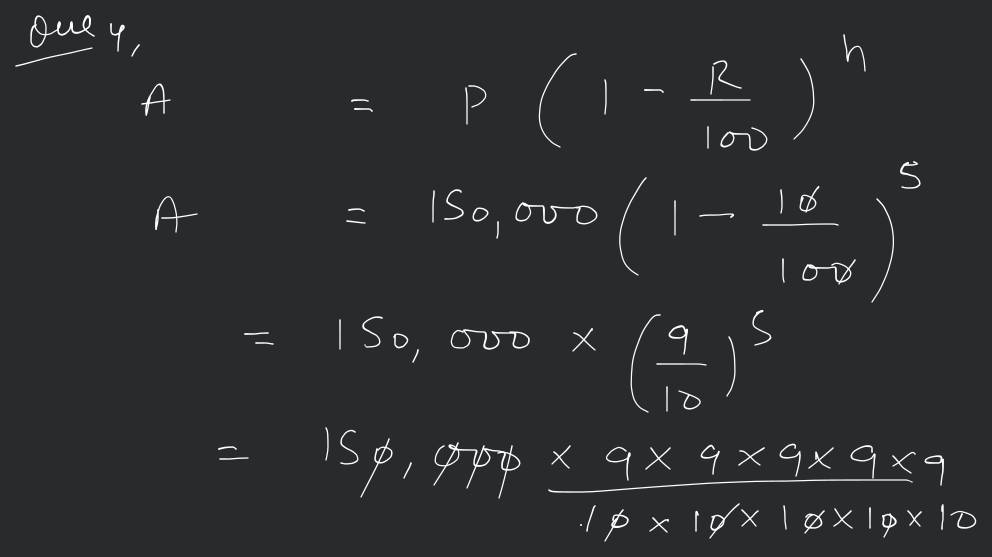 Que 4,
A = P ( 1 - R/100 )^n
A = 150,000 ( 1 - 10/100 )^5
= 150,000 × ( 9/10 )^5
= 150,000 × 9 × 9 × 9 × 9 × 9
10 × 10 × 10 × 10 × 10